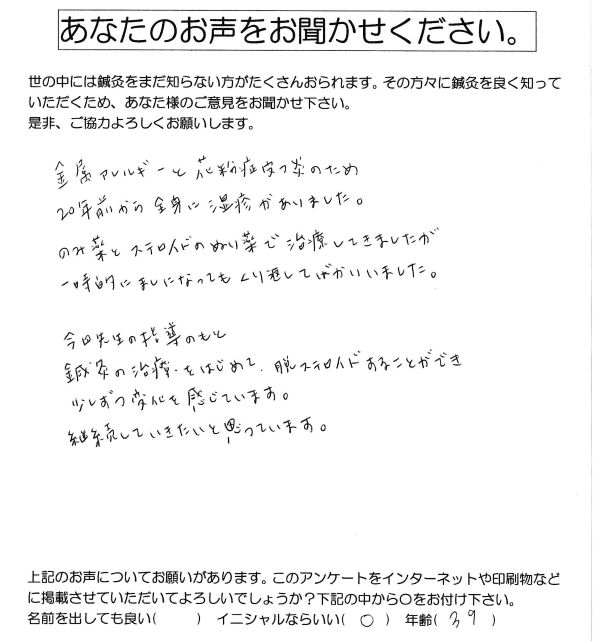 あなたのお声をお聞かせください。
世の中には鍼灸をまだ知らない方がたくさんおられます。その方々に鍼灸を良く知って
いただくため、あなた様のご意見をお聞かせ下さい。
是非、ご協力よろしくお願いします。
金属アレルギーと花粉症皮フ炎のため
20年前から全身に湿疹がありました。
のみ薬とステロイドのぬり薬で治療してきましたが
一時的にましになってもくり返してばかりいました。
今回先生の指導のもと
鍼灸の治療をはじめて、脱ステロイドすることができ
少しずつ変化を感じています。
継続していきたいと思っています。
上記のお声についてお願いがあります。このアンケートをインターネットや印刷物など
に掲載させていただいてよろしいでしょうか？下記の中から○をお付け下さい。
名前を出しても良い(　　)　イニシャルならいい( ○ )　年齢( 39 )